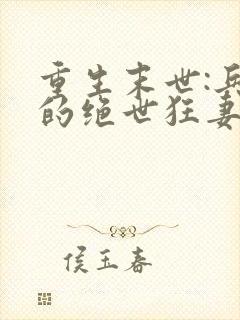 重生末世:兵
的绝世狂妻
侯玉春